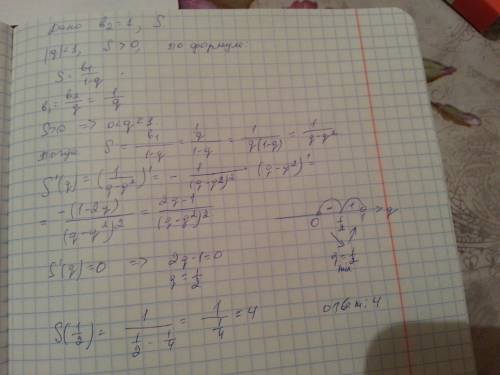 Дано b₂=1, S
|q|<1, S>0, по формуле
S = b₁/(1-q).
b₁ = b₂/q = 1/q
S>0 => 0<q<1
Тогда S = b₁/(1-q) = (1/q)/(1-q) = 1/(q(1-q)) = 1/(q-q²)
S'(q) = (1/(q-q²))' = - 1/(q-q²)² · (q-q²)' =
= -(1-2q)/(q-q²)² = (2q-1)/(q-q²)²
- +
0 1/2 1 q
S'(q)=0 => 2q-1=0
q = 1/2
q = 1/2
min
S(1/2) = 1/(1/2 - 1/4) = 1/(1/4) = 4
ответ: 4